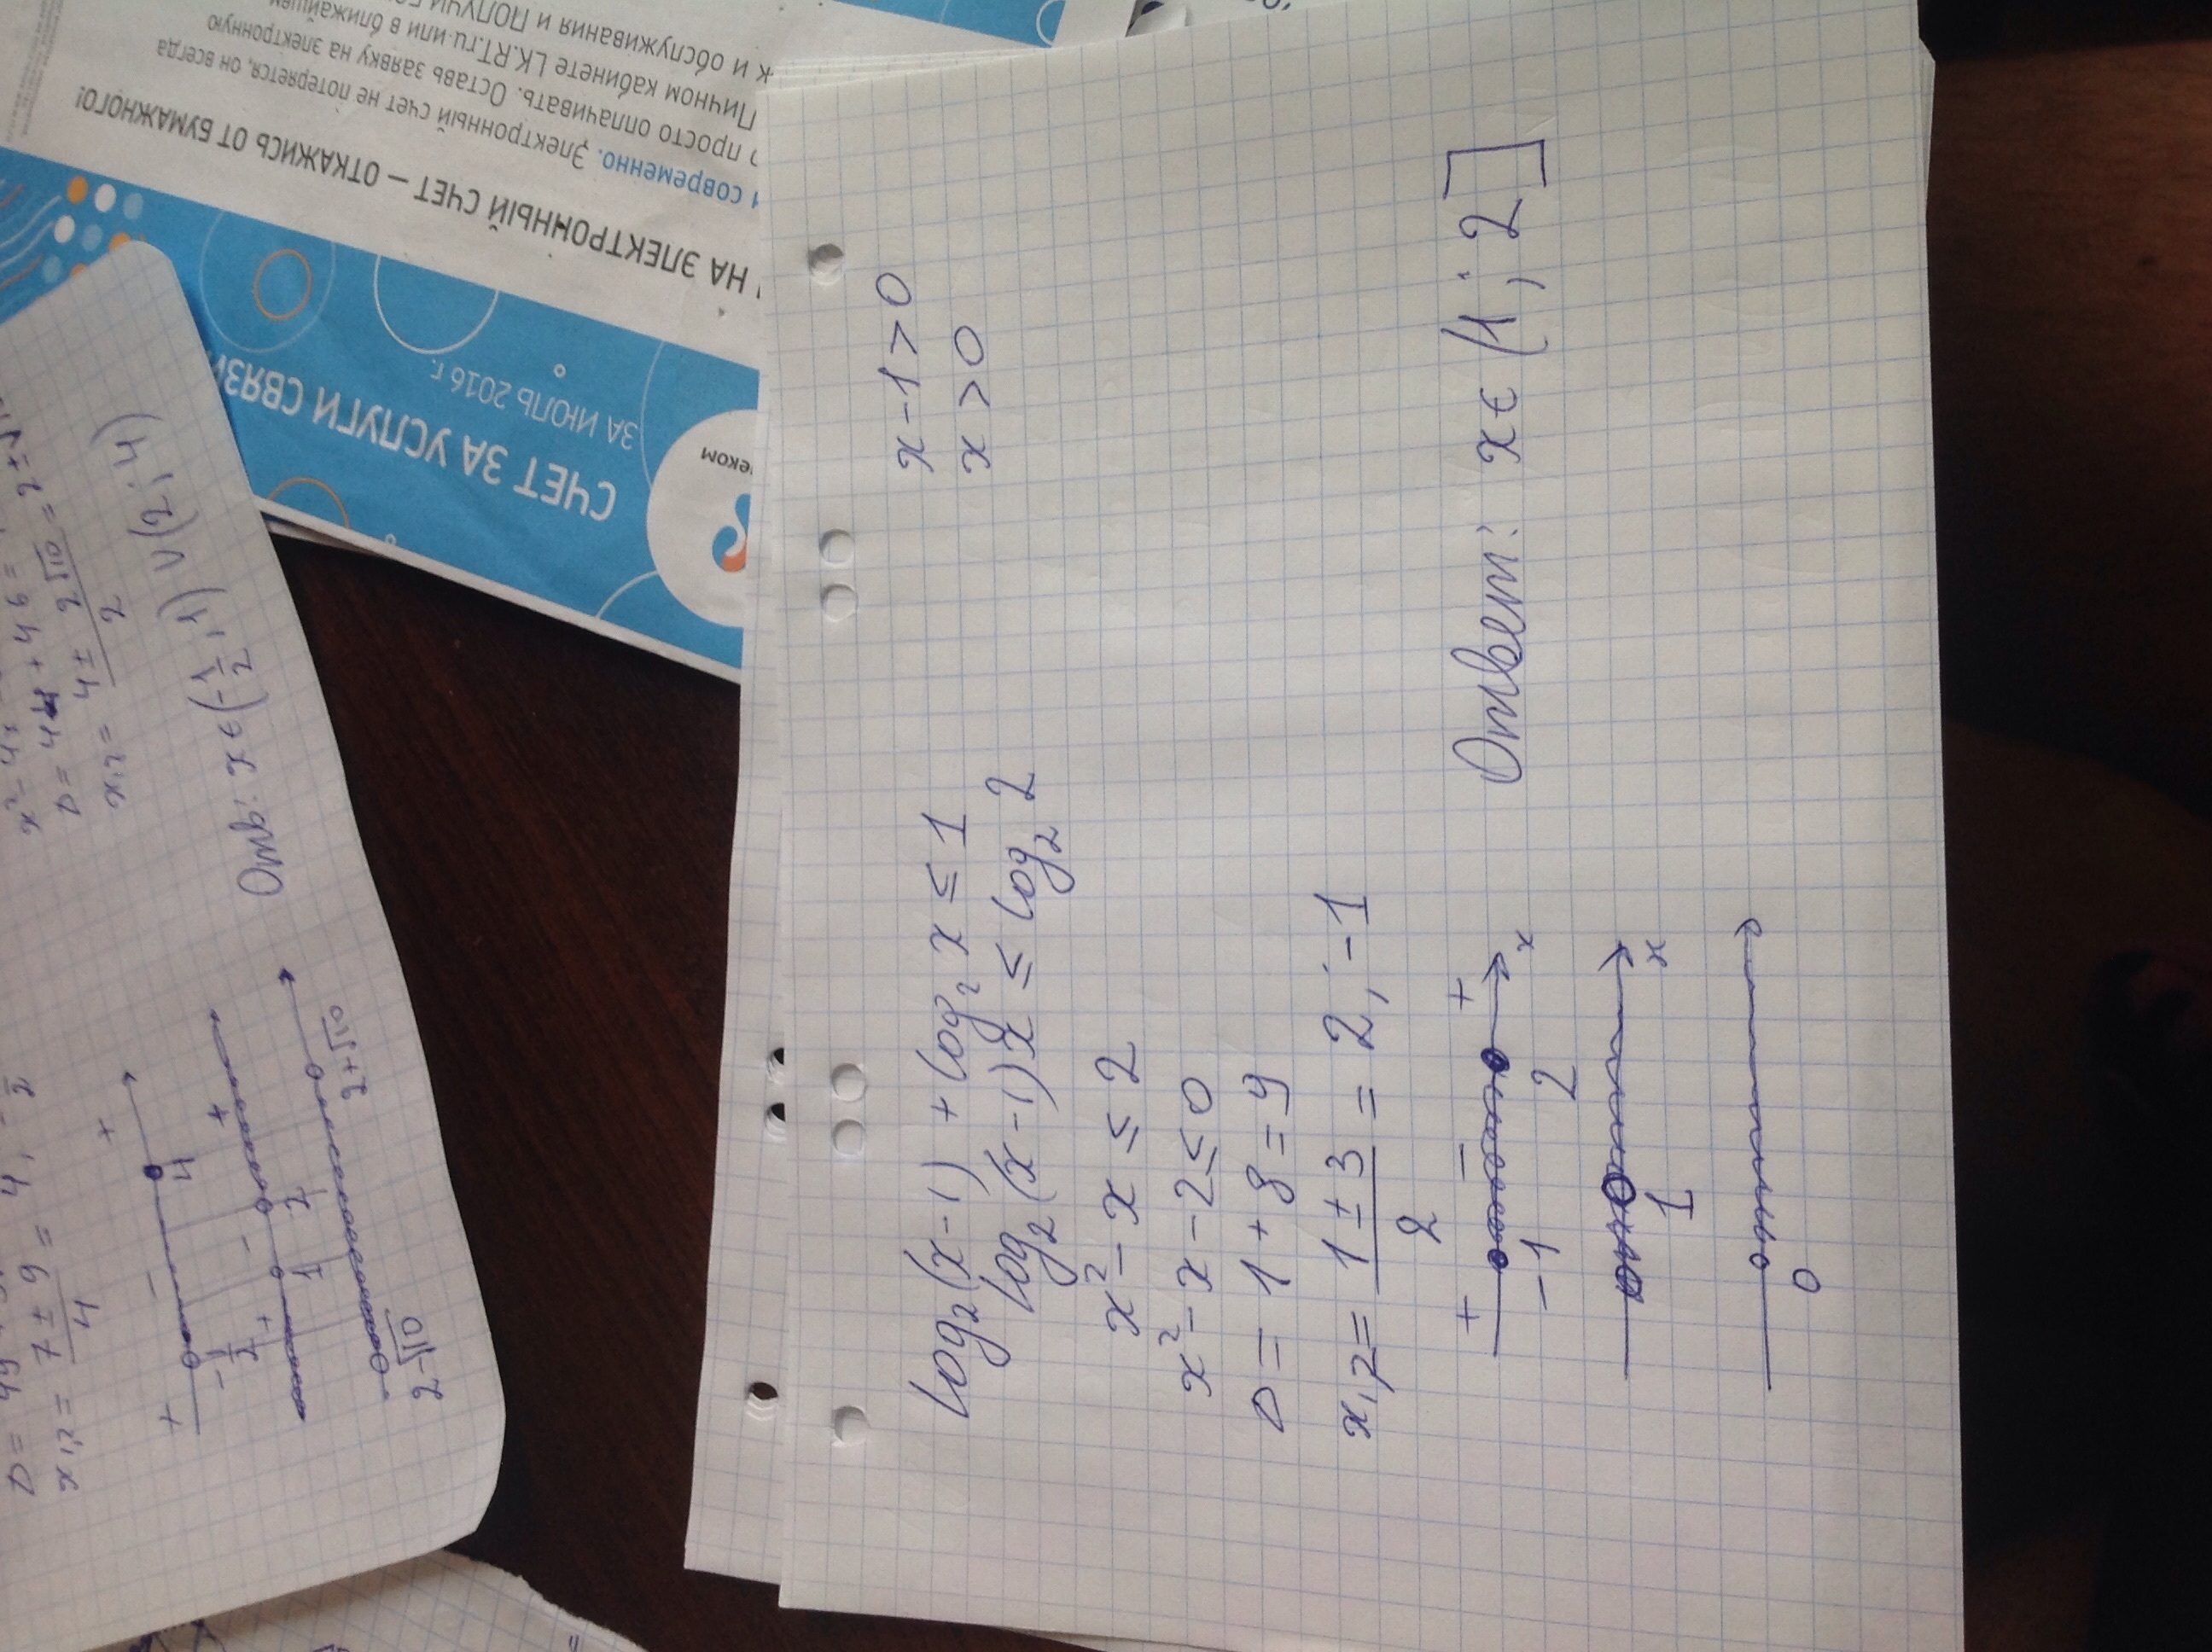 log₂(x-1) + log₂x ≤ 1
log₂(x-1)x ≤ log₂2
x² - x ≤ 2
x² - x - 2 ≤ 0
D = 1 + 8 = 9
x₁,₂ = (1 ± 3)/2 = 2; -1
+ - + x
-1 2
x
1
0
x - 1 > 0
x > 0
Ответ: x ∈ (1; 2]
x₁,₂ = (7 ± 9)/4 = 4,
+ - +
-1/2 4
+ - +
1 2
2-√10 2+√10
x₁,₂ = (4 ± 2√10)/2 =
Отв: x ∈ (-1/2; 1) ∪ (2; 4)
СЧЕТ ЗА УСЛУГИ СВЯЗИ
ЗА ИЮЛЬ 2016 г.
НА ЭЛЕКТРОННЫЙ СЧЕТ — ОТКАЖИСЬ ОТ БУМАЖНОГО!
современно. Электронный счет не потеряется, он всегда
просто оплачивать. Оставь заявку на электронную
Личном кабинете LK.RT.ru или в ближайшем
и обслуживания и ПОЛУЧИ